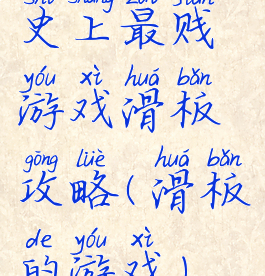 shǐ shàng zuì jiàn
史上最贱
yóu xì huá bǎn
游戏滑板
gōng lüè huá bǎn
攻略(滑板
de yóu xì
的游戏)